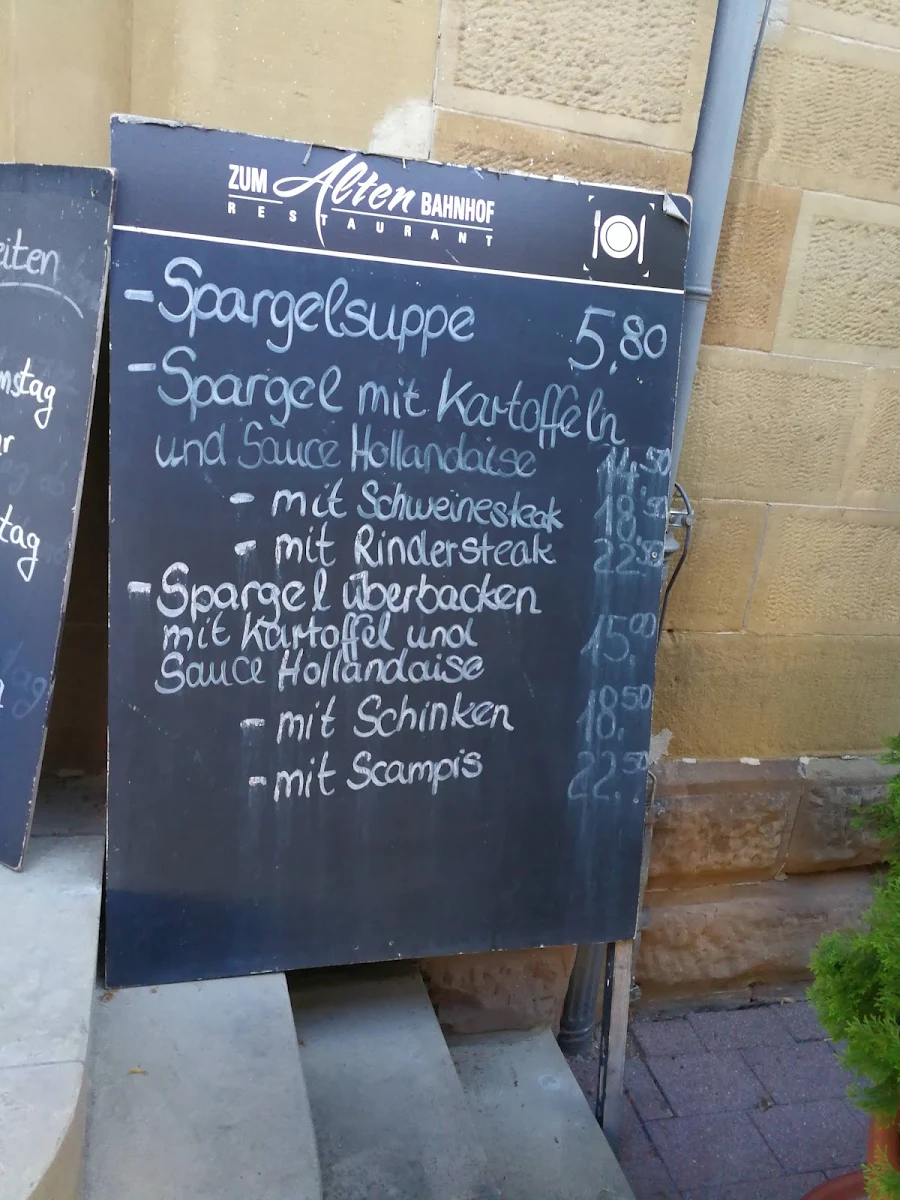 ZUM Alten BAHNHOF
RESTAURANT
- Spargelsuppe 5,80
- Spargel mit Kartoffeln
und Sauce Hollandaise 14,50
- mit Schweinesteak 18,50
- mit Rindersteak 22,50
- Spargel überbacken
mit Kartoffel und 15,00
Sauce Hollandaise
- mit Schinken 18,50
- mit Scampis 22,50